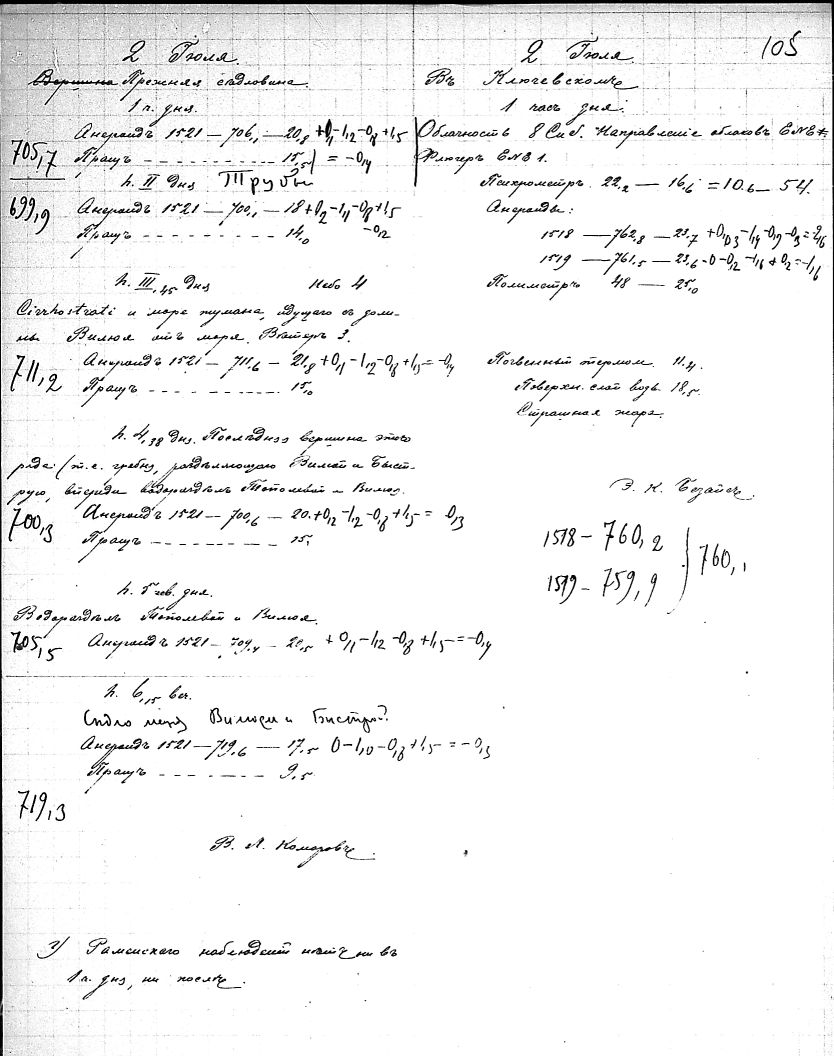 105
2 Іюля.
Вершина Прежняя сѣдловина.
1 ч. дня.
Анероидъ 1521 — 706,1 — 20,8 +0,1 -1,2 -0,8 +1,5
705,7
Пращъ - - - - - - - - - 15,5 = -0,4
h. II дня Трубы
699,9
Анероидъ 1521 — 700,1 — 18 +0,2 -1,1 -0,8 +1,5
Пращъ - - - - - - - - - 14,0 -0,2
h. III,45 дня Небо 4
Cirrhostrati и море тумана, идущаго съ доли-
ны Вилюя отъ моря. Вѣтеръ 3.
711,2
Анероидъ 1521 — 711,6 — 21,8 +0,1 -1,2 -0,8 +1,5 = -0,4
Пращъ - - - - - - - - - 15,0
h. 4,38 дня. Послѣдняя вершина этого
ряда (т.е. гребня, раздѣляющаго Вилюй и Быст-
рую, впереди водораздѣлъ Тополевой и Вилюя.
700,3
Анероидъ 1521 — 700,6 — 20. +0,2 -1,2 -0,8 +1,5 = 0,3
Пращъ - - - - - - - - - 15,
h. 5 дня.
Водораздѣлъ Тополевой и Вилюя.
705,5
Анероидъ 1521 — 709,4 — 20,5 +0,1 -1,2 -0,8 +1,5 = -0,4
h. 6,15 веч.
Сѣдло межд Вилюем и Быстрой?
Анероидъ 1521 — 719,6 — 17,5 0 -1,0 -0,8 +1,5 = -0,3
Пращъ - - - - - - - 9,5
719,3
В. Л. Комаровъ.
Раменскаго наблюденій нѣтъ ни въ
1 ч. дня, ни послѣ.
2 Іюля.
Въ Ключевскомъ
1 часъ дня.
Облачность 8 Направленіе облаковъ ENE
Флюгеръ ENE 1.
Психрометръ 22,2 — 16,6 = 10,6 — 54.
Анероиды:
1518 — 762,8 — 23,7 +0,03 -1,4 -0,9 -0,3 = -2,6
1519 — 761,5 — 23,6 -0 -0,2 -1,6 +0,2 = -1,6
Полиметръ 48 — 25,0
Почвенный термом. 11,4.
Поверхн. слой воды 18,5.
Страшная жара.
Э. К. Безайсъ.
1518 — 760,2
1519 — 759,9
760,1